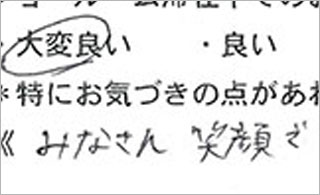 ・大変良い ・良い
*特にお気づきの点があれ
《 みなさん 笑顔で